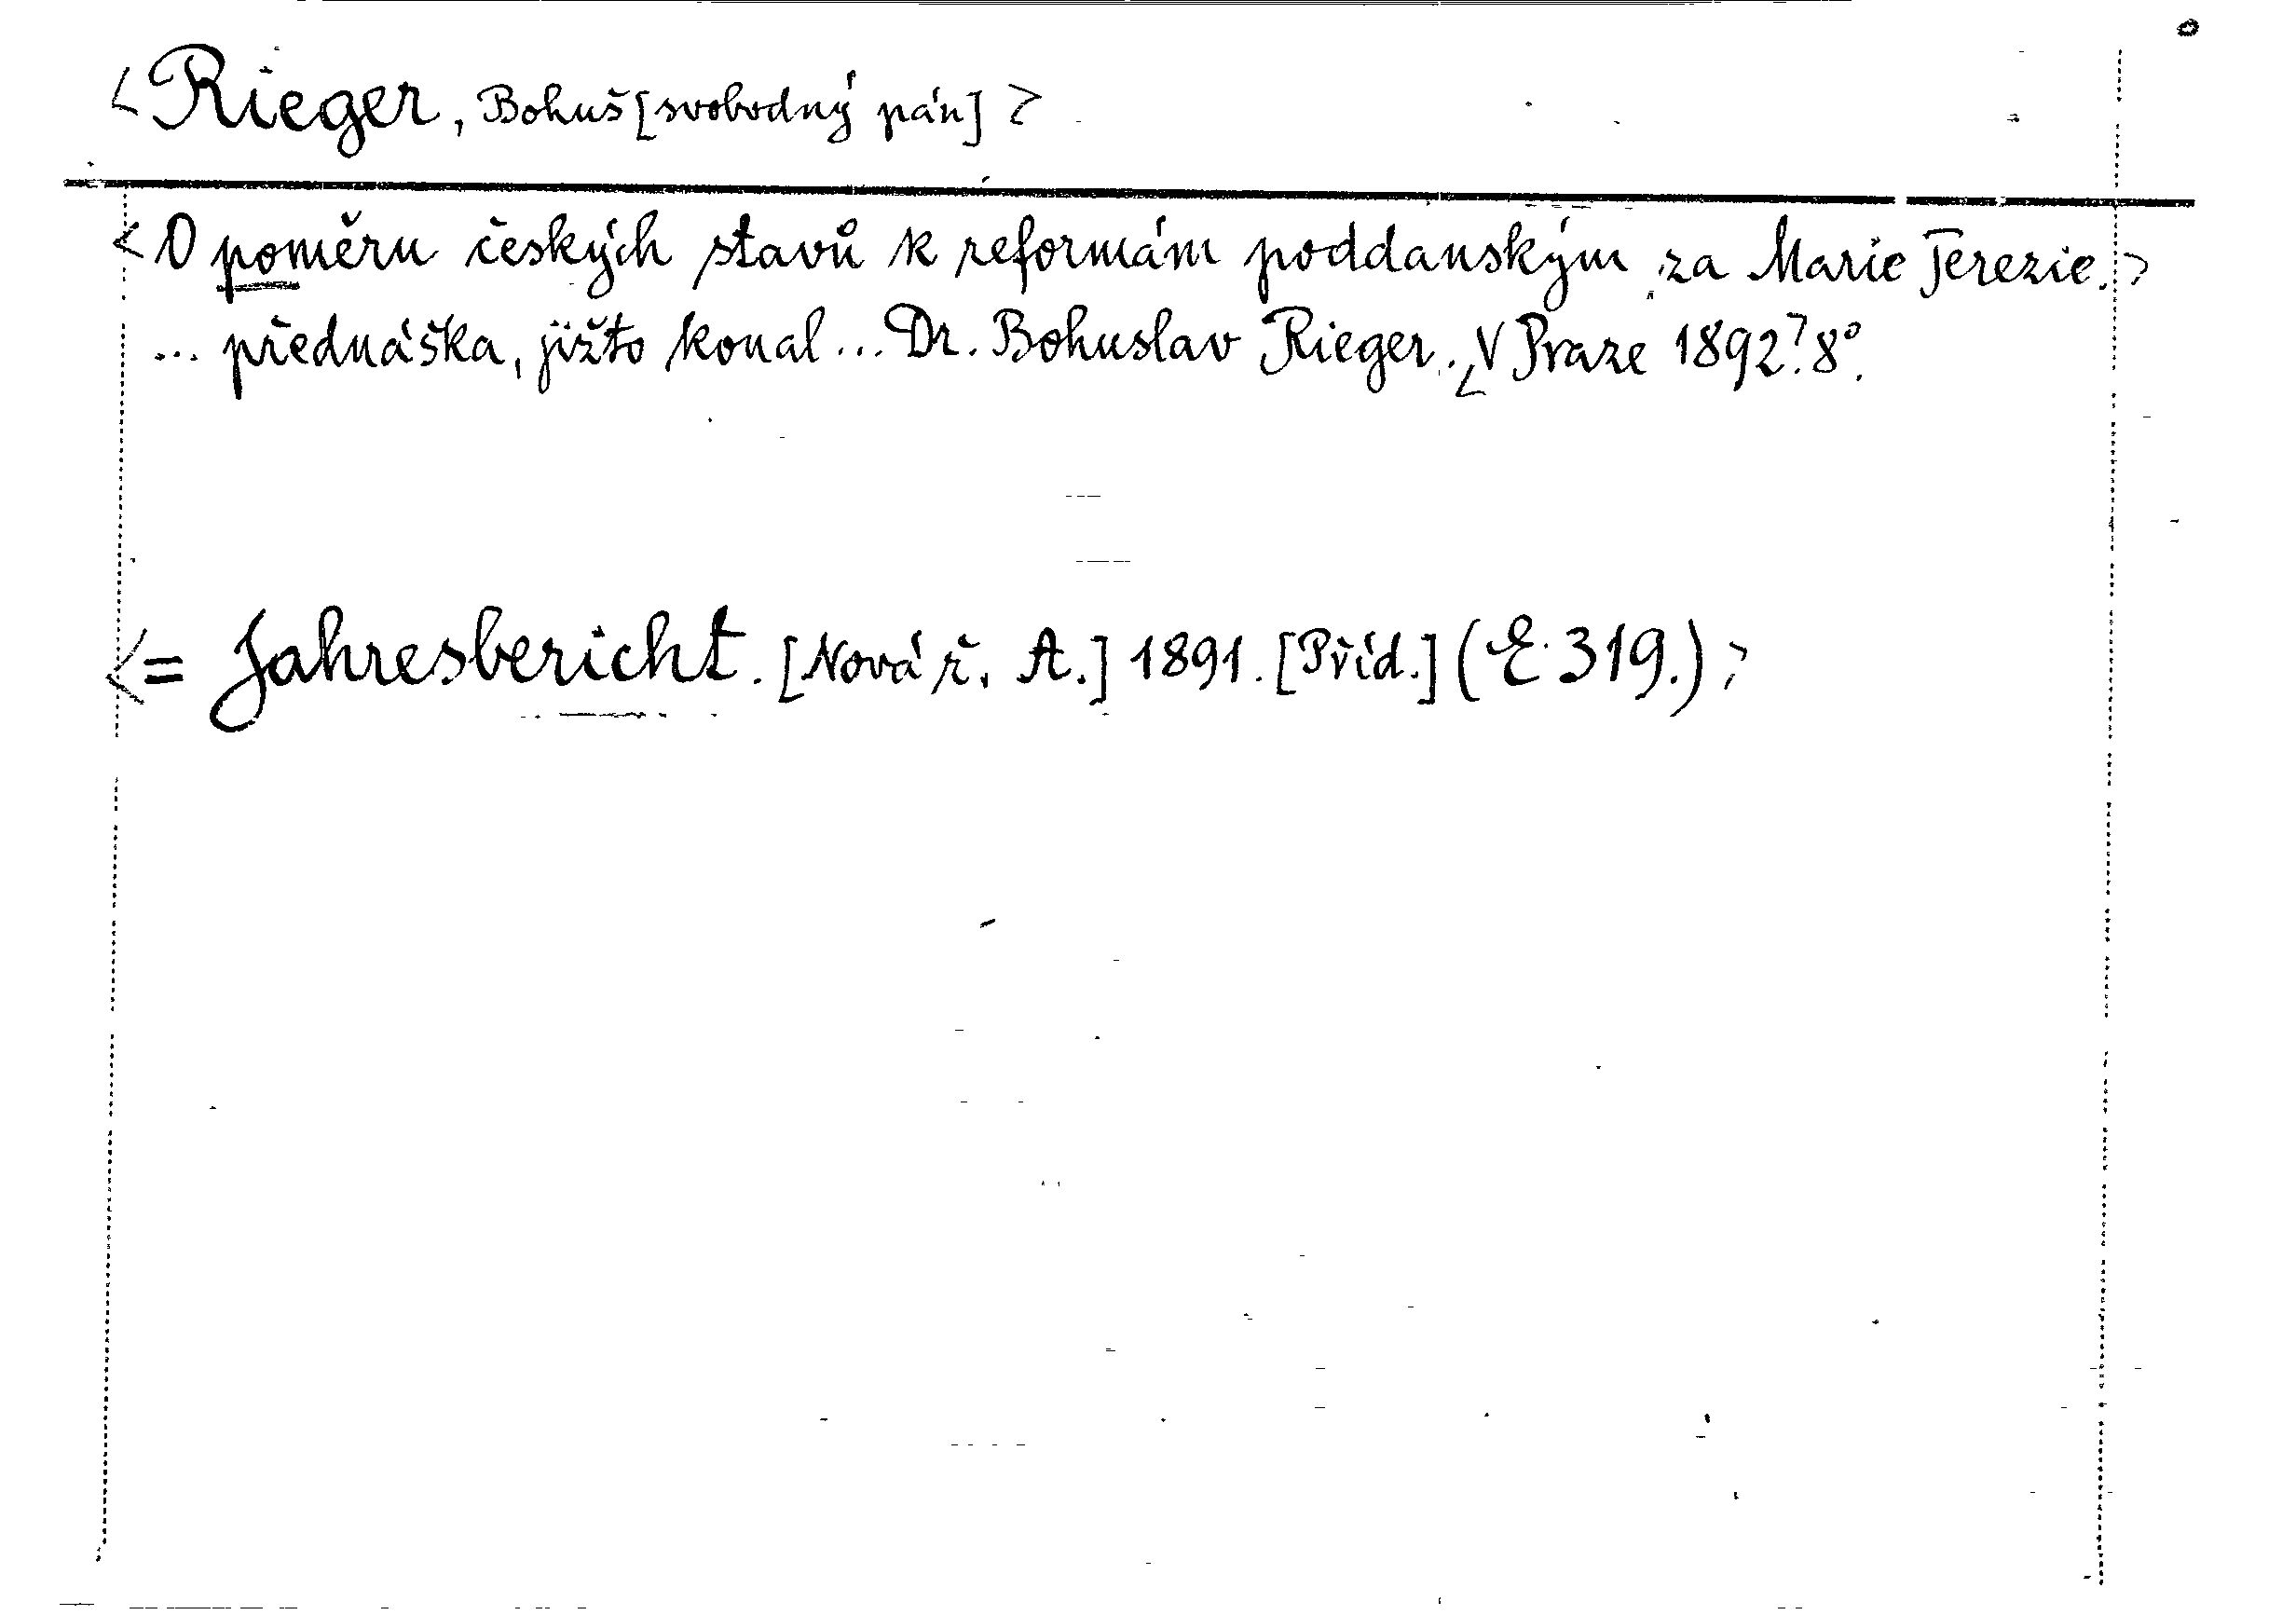 <Rieger, Bohuš [svobodný pán]>
<O poměru českých stavů k reformám poddanským za Marie Terezie.>
... přednáška, jížto konal ... Dr. Bohuslav Rieger. <V Praze 1892> 8°.
<= Jahresbericht. [Nová ř. A.] 1891. [Příd.] (E. 319.)>